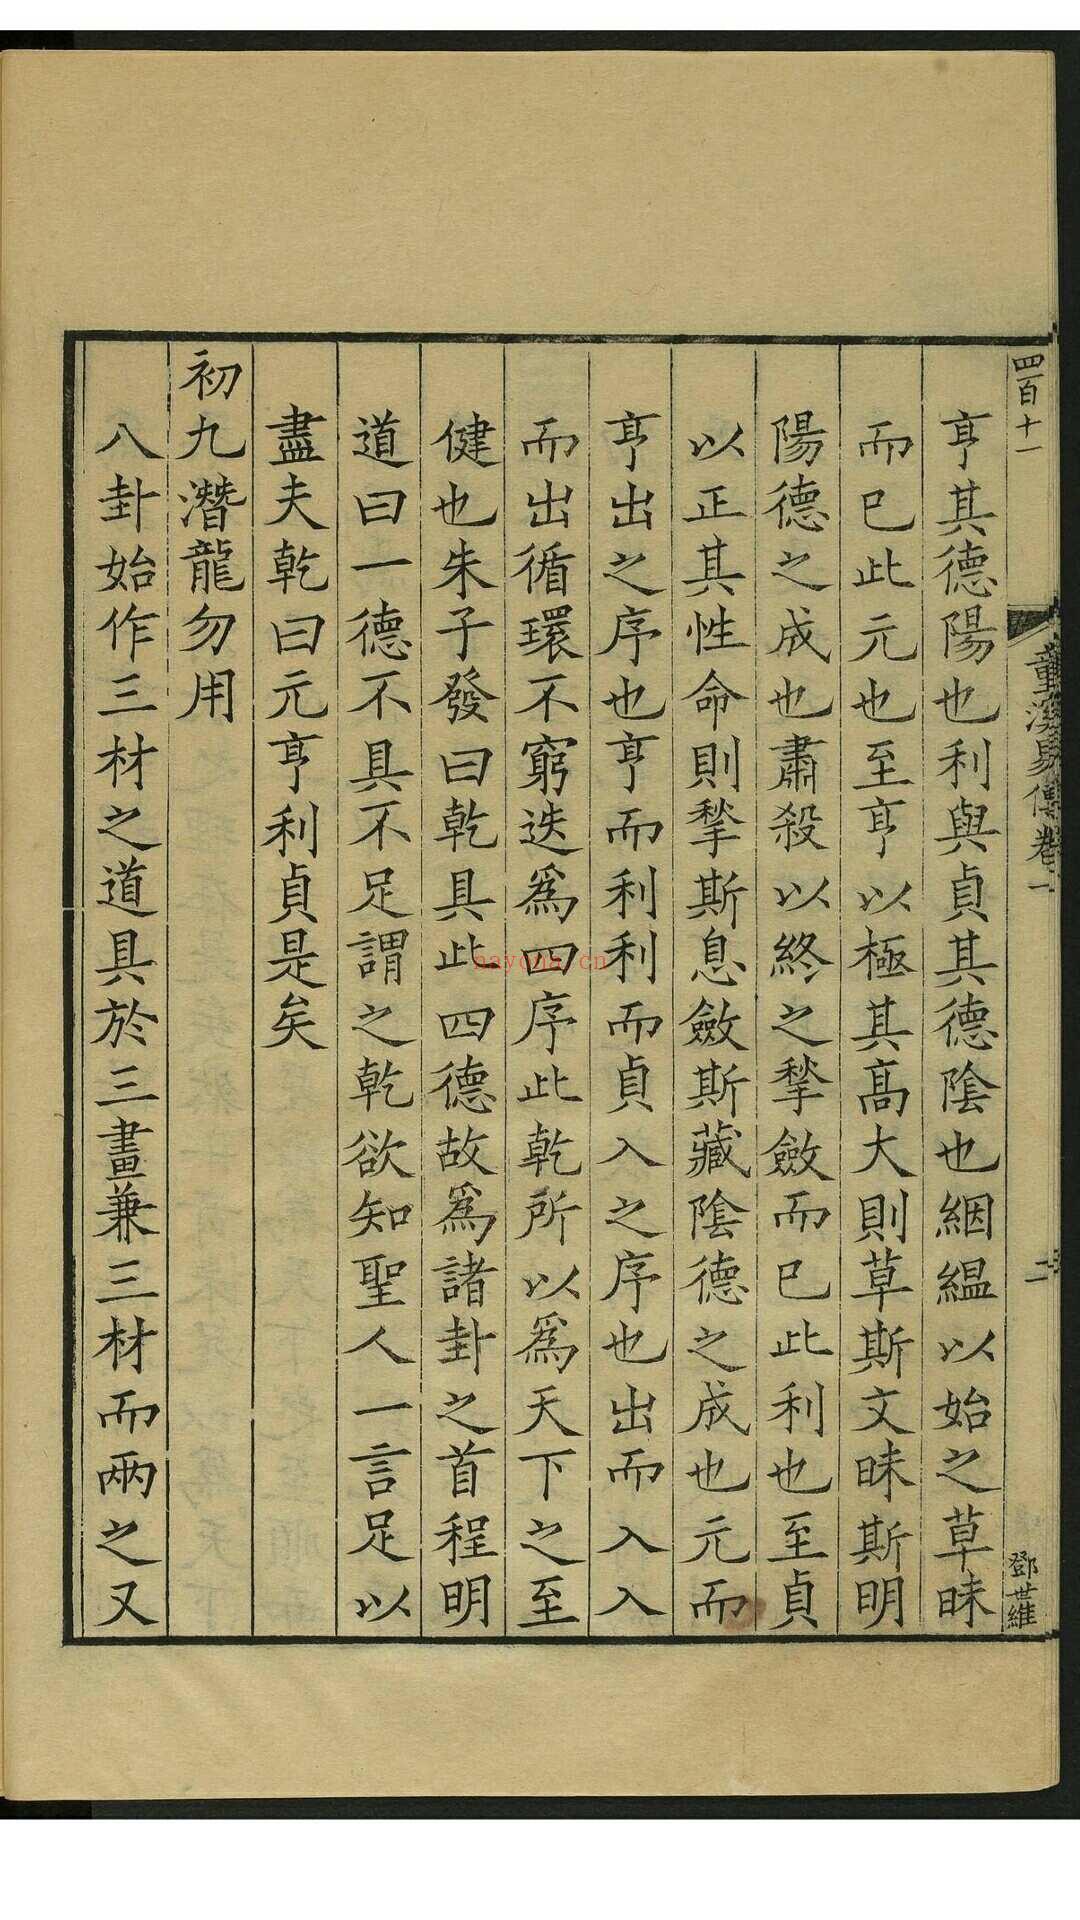 四百十一
童溪易傳卷一
二
鄧世維
亨其德陽也利與貞其德陰也絪縕以始之草昧
而已此元也至亨以極其高大則草斯文昧斯明
陽德之成也肅殺以終之揫斂而已此利也至貞
以正其性命則揫斯息斂斯藏陰德之成也元而
亨出之序也亨而利利而貞入之序也出而入入
而出循環不窮迭爲四序此乾所以爲天下之至
健也朱子發曰乾具此四德故爲諸卦之首程明
道曰一德不具不足謂之乾欲知聖人一言足以
盡夫乾曰元亨利貞是矣
初九潛龍勿用
八卦始作三材之道具於三畫兼三材而兩之又
nayona.cn